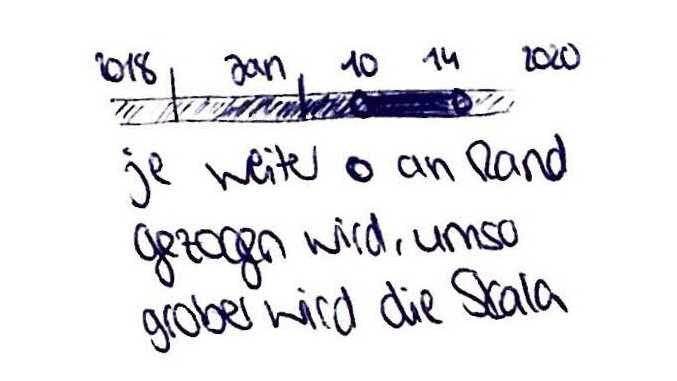 2018 Jan 10 14 2020
je weiter o an Rand
gezogen wird, umso
grober wird die Skala